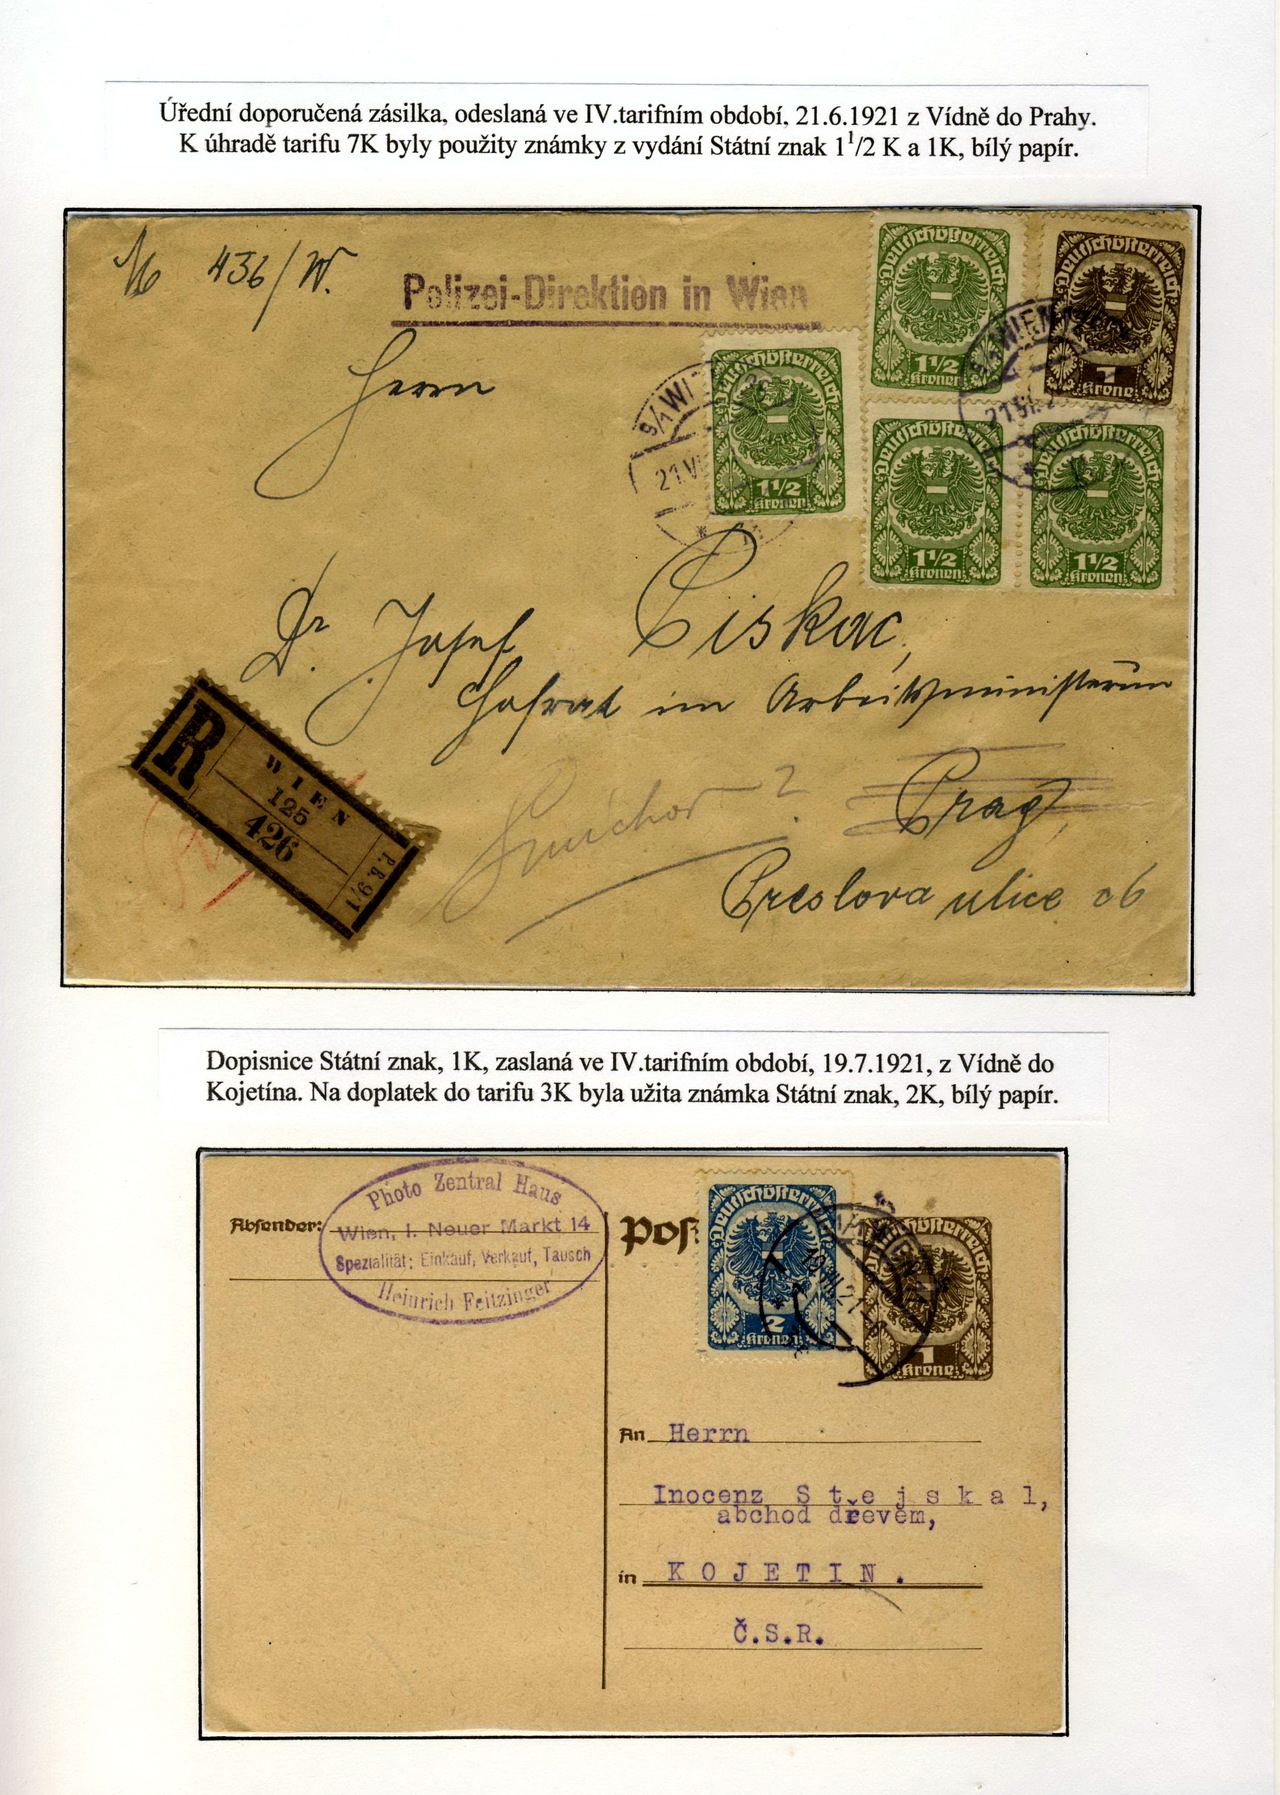 Úřední doporučená zásilka, odeslaná ve IV.tarifním období, 21.6.1921 z Vídně do Prahy.
K úhradě tarifu 7K byly použity známky z vydání Státní znak 1 1/2 K a 1K, bílý papír.
436/W.
Polizei-Direktion in Wien
Deutschösterreich
1½
Kronen
Deutschösterreich
1
Krone
Deutschösterreich
1½
Kronen
Deutschösterreich
1½
Kronen
Deutschösterreich
1½
Kronen
9/1 WI
21.VI
WIEN
21.VI.2
Herrn
Dr. Josef Ciskac,
Hofrat im Arbeitsministerium
Smichov?
Prag,
Preslova ulice c6
R
WIEN
125
426
P.B.9/1
Dopisnice Státní znak, 1K, zaslaná ve IV.tarifním období, 19.7.1921, z Vídně do
Kojetína. Na doplatek do tarifu 3K byla užita známka Státní znak, 2K, bílý papír.
Absender:
Photo Zentral Haus
Wien, I. Neuer Markt 14
Spezialität: Einkauf, Verkauf, Tausch
Heinrich Feitzinger
Pos
Deutschösterreich
2
Kronen
Deutschösterreich
1
Krone
WIEN
19.VII.21
An Herrn
Inocenz Stejskal,
abchod dřevem,
in KOJETIN.
Č.S.R.